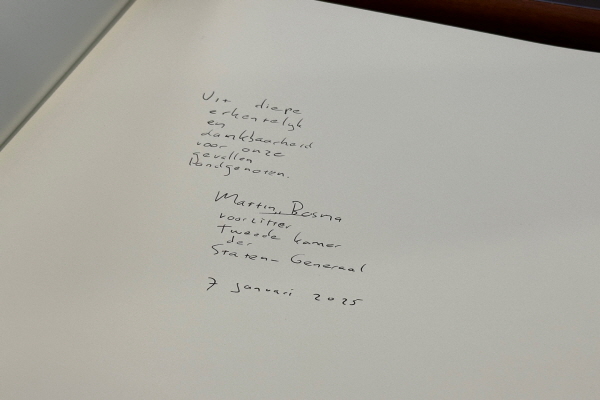 Uit diepe
erkentelijk
en
dankbaarheid
voor onze
gevallen
landgenoten.
Martin Bosma
voorzitter
Tweede Kamer
der
Staten-Generaal
7 januari 2025